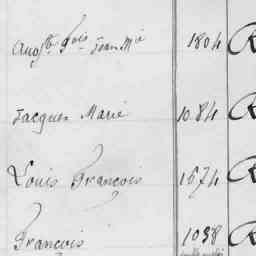 Aug.te fois Jean M.ie 1804 R
Jacques Marie 1084 R
Louis François 1574 R
François 1038 R